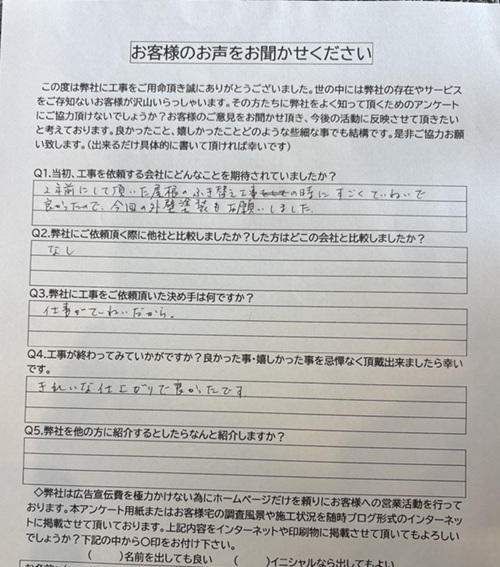 お客様のお声をお聞かせください
この度は弊社に工事をご用命頂き誠にありがとうございました。世の中には弊社の存在やサービス
をご存知ないお客様が沢山いらっしゃいます。その方たちに弊社をよく知って頂くためのアンケート
にご協力頂けないでしょうか？お客様のご意見をお聞かせ頂き、今後の活動に反映させて頂きたい
と考えております。良かったこと、嬉しかったことどのような些細な事でも結構です。是非ご協力お願
い致します。（出来るだけ具体的に書いて頂ければ幸いです）
Q1.当初、工事を依頼する会社にどんなことを期待されていましたか？
2年前にして頂いた屋根のふき替え工事の時にすごくていねいで
良かったので、今回の外壁塗装もお願いしました。
Q2.弊社にご依頼頂く際に他社と比較しましたか？した方はどこの会社と比較しましたか？
なし
Q3.弊社に工事をご依頼頂いた決め手は何ですか？
仕事がていねいだから。
Q4.工事が終わってみていかがですか？良かった事・嬉しかった事を忌憚なく頂戴出来ましたら幸い
です。
きれいな仕上がりで良かったです
Q5.弊社を他の方に紹介するとしたらなんと紹介しますか？
◇弊社は広告宣伝費を極力かけない為にホームページだけを頼りにお客様への営業活動を行って
おります。本アンケート用紙またはお客様宅の調査風景や施工状況を随時ブログ形式のインターネッ
トに掲載させて頂いております。上記内容をインターネットや印刷物に掲載させて頂いてもよろしい
でしょうか？下記の中から〇印をお付け下さい。
（　　）名前を出しても良い　（　　）イニシャルなら出してもよい